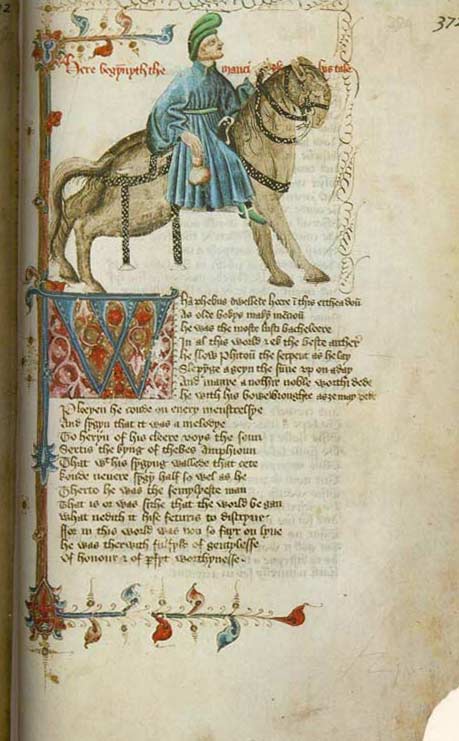 372
Here begynyth the manciple his tale
Whan phebus dwellede heere i this erthe adou
As olde bokys make mencou
he was the moste lusti bacheleere
In al this world & ek the beste archer
he slow Phitou the serpent as he lay
Slepyge ageyn the sune vp on a day
And manye a nothir noble worthi dede
he with his bowe wroughte as ȝe may rede
Pleyen he coude on euery menstrelsye
And syngyn that it was a melodye
To heryn of his cleere voys the soun
Sertis the kyng of thebes Amphioun
That wt his syngyng wallede that cete
koude neuere syngy half so wel as he
Therto he was the semyleste man
That is or was sithe that the world be gan
what nedith it hise feturis to discryue
ffor in this world was non so fayr on lyue
he was therwith fulfyld of gentylesse
Of honour & of perfyt worthynesse